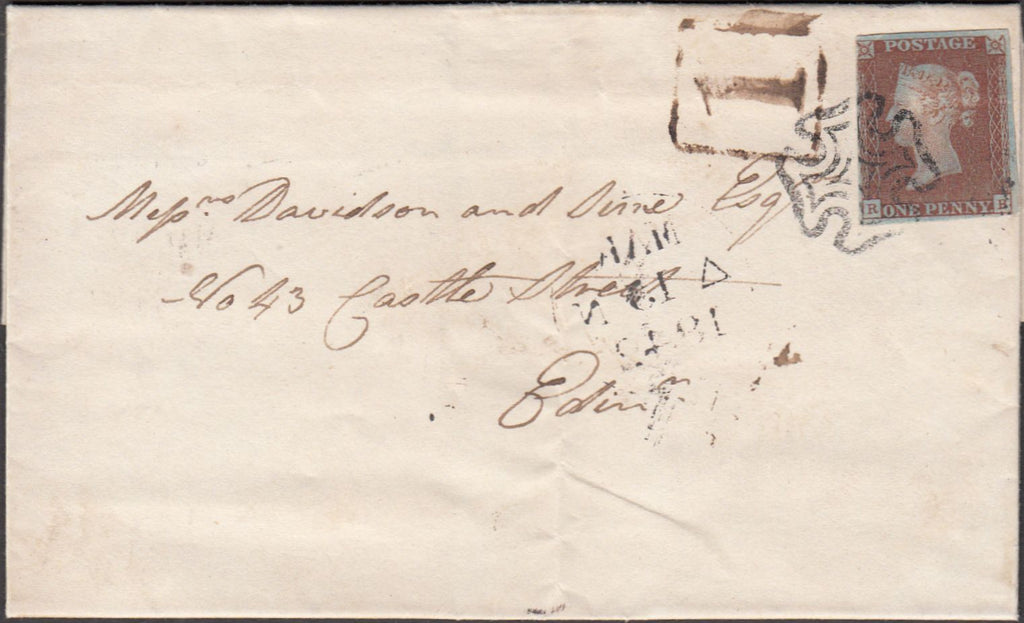 1
POSTAGE
R ONE PENNY B
Messrs Davidson and Sime Esq
No 43 Castle Street
Edinr